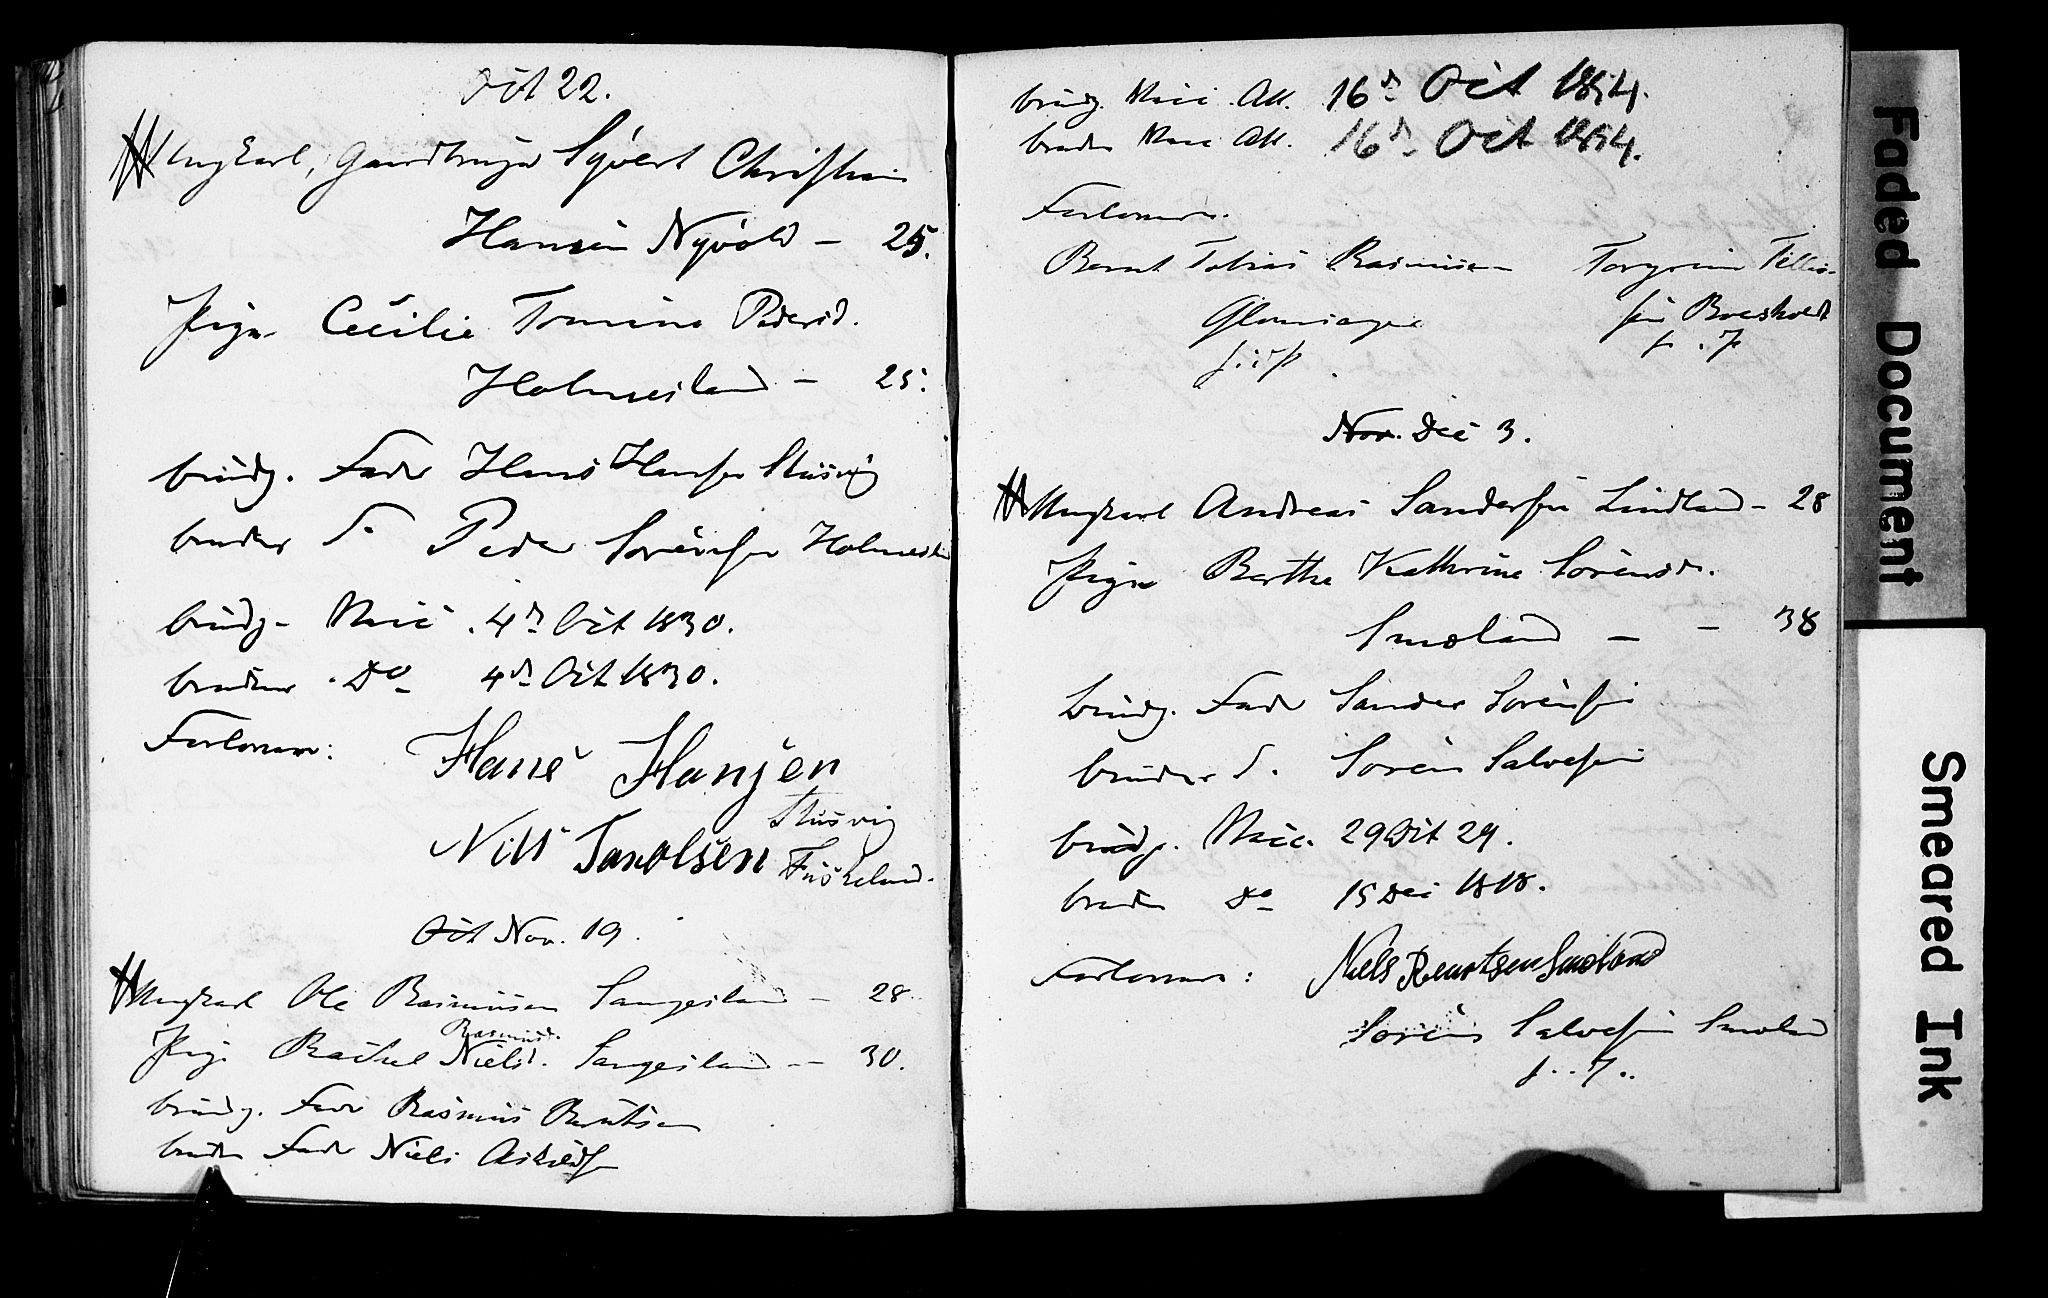 Oct 22.
Ungkarl, Gaardbruger Syvert Christian
Hansen Nyvold – 25.
Pige Cecilie Tomine Pedersd.
Holmesland – 25.
brudg. Fader Hans Hansen Stusvig
brudens F. Peder Sørensen Holmesla
brudg. Vacc. 4d Oct 1830.
brudens Do 4d Oct 1830.
Forlovere:
Hans Hansen
Stusvig
Nils Taraldsen Fuskeland.
Oct Nov. 19.
Ungkarl Ole Rasmussen Sangesland – 28
Rasmusd.
Pige Rachel Nielsd. Sangesland – 30.
brudg. Fader Rasmus Berntsen
bruden Fader Niels
brudg. Vacc. Att. 16d Oct 1854.
bruden Vacc Att. 16d Oct 1854.
Forlovere.
Bernt Tobias Rasmussen Torgrim Tellef-
sen
Nov. Dec 3.
Ungkarl Andreas Sandersen Lindland – 28
Pige Berthe Kathrine Sørensd.
Smøland – – 38
brudg. Fader Sander Sørensen
brudens F. Søren Salvesen
brudg. Vacc. 29 Oct 29.
bruden Do 15 Dec 1818.
Forlovere: Niels Berntsen Smøland
Søren Salvesen Smøland
Faded Document
Smeared Ink